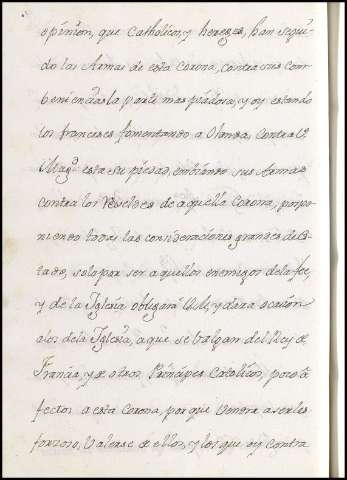 opinion, que Catholicos, y hereges, han segui-
do las Armas de esta Corona, contra sus com-
beniencias la parte mas piadosa, y oy estando
los franceses fomentando a Olanda, contra V.
Magd. esta su piedad, embiando sus Armas
contra los Reveldes de aquella Corona, porpo-
niendo todas las consideraciones grandes de Es-
tado, solo por ser aquellos enemigos de la fee,
y de la Iglesia obligará y dara ocasion
a los de la Iglesia, a que se balgan del Rey de
Francia, y de otros Principes Catolicos, poco a-
fectos a esta Corona, porque vendra a serles
forzoso, valerse de ellos, y los que oy contra